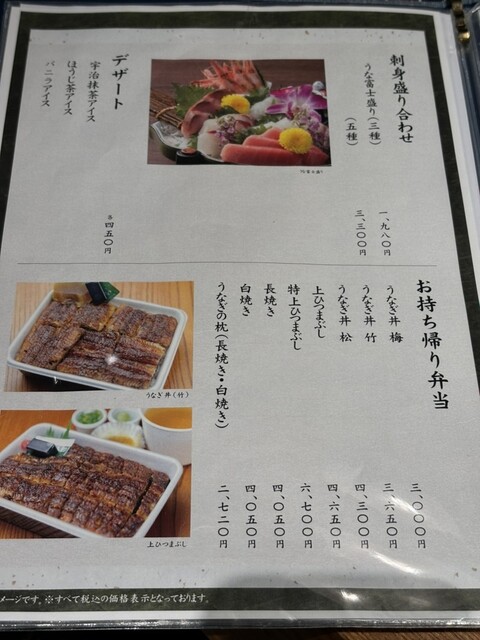 刺身盛り合わせ
うな富士盛り(三種) 一、九八〇円
(五種) 三、三〇〇円
デザート
宇治抹茶アイス
ほうじ茶アイス
バニラアイス
各四五〇円
お持ち帰り弁当
うなぎ丼 梅 三、〇〇〇円
うなぎ丼 竹 三、六五〇円
うなぎ丼 松 四、三〇〇円
上ひつまぶし 四、六五〇円
特上ひつまぶし 六、七〇〇円
長焼き 四、〇五〇円
白焼き 四、〇五〇円
うなぎの枕(長焼き・白焼き) 二、七二〇円
うなぎ丼(竹)
上ひつまぶし
メージです。※すべて税込の価格表示となっております。